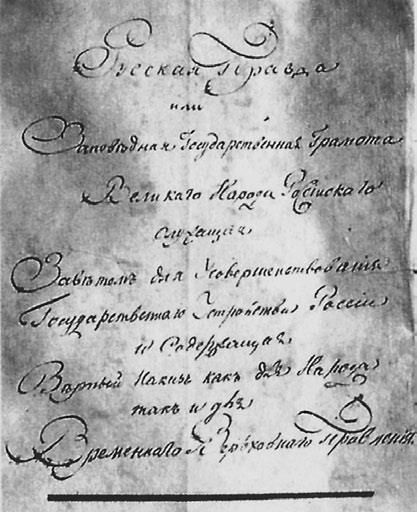 Руская Правда
или
Заповѣдная Государственная Грамота
Великаго Народа Россійскаго
служащая
Завѣтомъ для Усовершенствованія
Государственнаго Устройства Россіи
и Содержащая
Вѣрный Наказъ какъ для Народа
такъ и для
Временнаго Верховнаго Правленія.